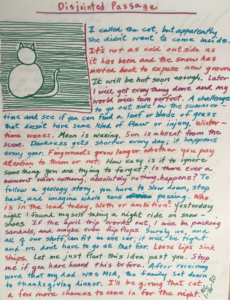 Disjointed Passage
I called the cat, but apparently
she didn't want to come inside.
It's not as cold outside as
it has been and the snow has
melted back to expose new ground
It will be hot soon enough. Later
I will get everything done and my
world will turn perfect. A challenge
to go out side in the summer-
time and see if you can find a leaf or blade of grass
that doesn't have some kind of flaw or injury. Winter
has waned. Moon is waxing. Sun is absent from the
scene. Darkness gets shorter every day, it happens
every year. Fingernails grow longer whether you pay
attention to them or not. How easy is it to ignore
some thing you are trying to forget? Is there ever a
moment when nothing, absolutely nothing, happens? To
follow a geology story, you have to slow down, stop
back, and imagine what passing. Who
is in the lead today, sloth or ambition? Yesterday
night I found myself taking a night ride on snow
shoes. If the April trip works out, I will be packing
sandals, and maybe even flip flops. Surely we, and
all of our stuff, can fit in one car, it will be tight
and we don't have to go all that far. Loose lips sink
ships. Let me just float this idea past you. Stop
me if you have heard this before. After receiving
word that my dad was MIA, the family sat down
to thanksgiving dinner. I'll be giving that cat
a few more chances to come in for the night.